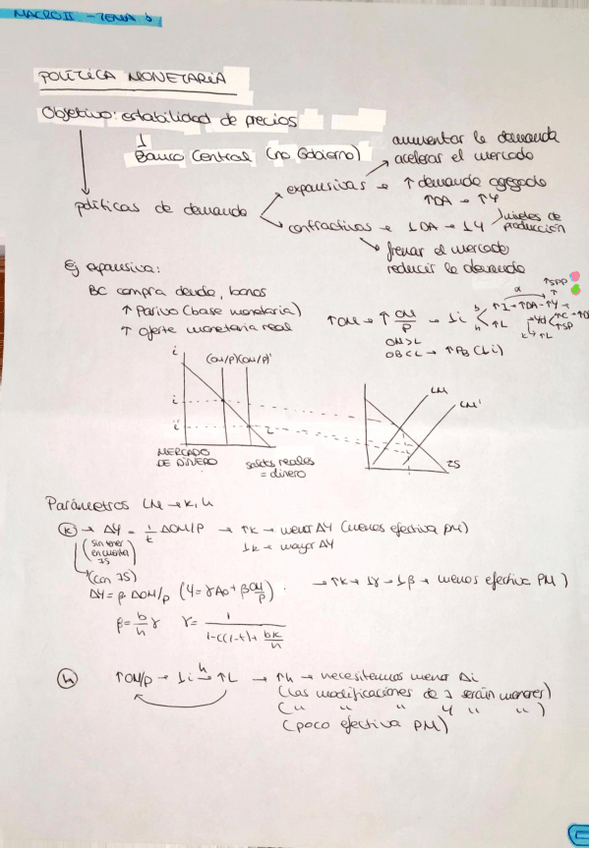 MACRO II - TEMA 3
POLÍTICA MONETARIA
Objetivo: estabilidad de precios
↓
Banco Central (no Gobierno)
políticas de demanda
expansivas → ↑ demanda agregada
↑DA → ↑Y
aumentar la demanda
acelerar el mercado
contractivas → ↓DA → ↓Y
niveles de
producción
frenar el mercado
reducir la demanda
Ej expansiva:
BC compra deuda, bonos
↑ Pasivo (base monetaria)
↑ oferta monetaria real
↑OM → ↑ OM/P → ↓i
b ↑I → ↑DA → ↑Y →
h ↑L
α
↑SPP
↑
Yd ↑C → ↑DA
↑SP
k → ↑L
OM > L
OB < L → ↑PB (↓i)
i
(OM/P) (OM/P)'
i
i'
L
MERCADO
DE DINERO
saldos reales
= dinero
LM
LM'
IS
Parámetros LM → k, h
k → ΔY = 1/k ΔOM/P → ↑k → menor ΔY (menos efectiva PM)
↓k → mayor ΔY
(sin tener
en cuenta
IS)
(con IS)
ΔY = β ΔOM/P (Y = γA0 + β OM/P) → ↑k → ↓γ → ↓β → menos efectiva PM)
β = b/h γ γ = 1 / 1-c(1-t) + bk/h
h ↑OM/P → ↓i →h ↑L → ↑h → necesitamos menor Δi
(las modificaciones de I serán menores)
( " " " Y " " )
(poco efectiva PM)